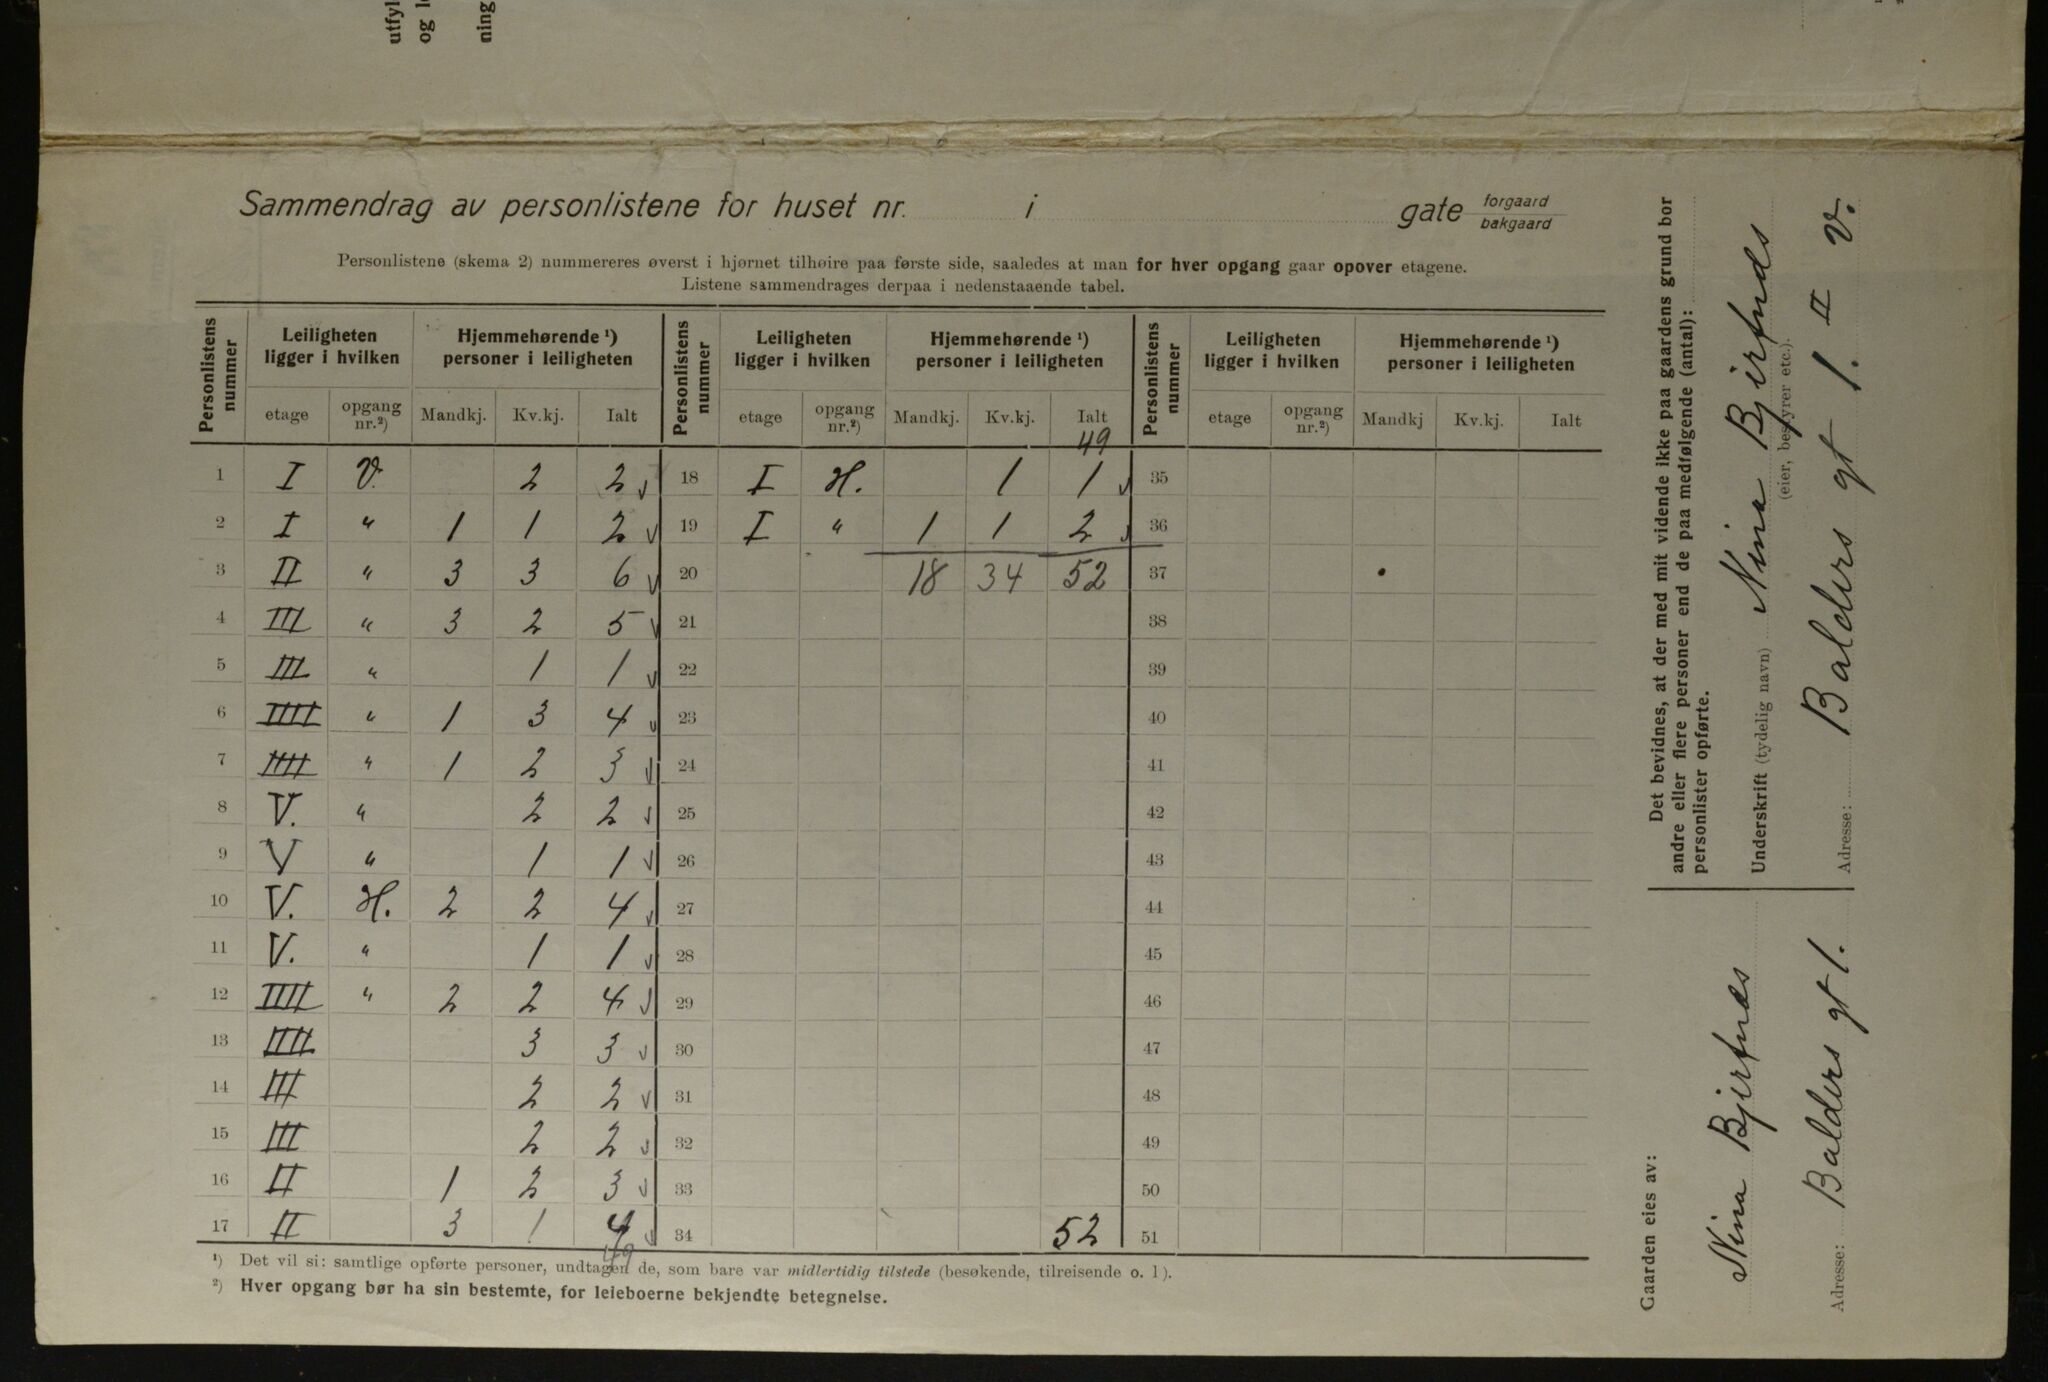 utfyl
og l
ning
Sammendrag av personlistene for huset nr. i gate forgaard bakgaard
Personlistene (skema 2) nummereres øverst i hjørnet tilhøire paa første side, saaledes at man for hver opgang gaar opover etagene.
Listene sammendrages derpaa i nedenstaaende tabel.
Personlistens nummer | Leiligheten ligger i hvilken | Hjemmehørende ¹) personer i leiligheten | Personlistens nummer | Leiligheten ligger i hvilken | Hjemmehørende ¹) personer i leiligheten | Personlistens nummer | Leiligheten ligger i hvilken | Hjemmehørende ¹) personer i leiligheten
etage | opgang nr.²) | Mandkj. | Kv.kj. | Ialt | etage | opgang nr.²) | Mandkj. | Kv.kj. | Ialt | etage | opgang nr.²) | Mandkj | Kv.kj. | Ialt
49
1 I V. 2 2 √ 18 I H. 1 1 √ 35
2 I " 1 1 2 √ 19 I " 1 1 2 √ 36
3 II " 3 3 6 √ 20 18 34 52 37
4 III " 3 2 5 √ 21 38
5 III " 1 1 √ 22 39
6 IIII " 1 3 4 √ 23 40
7 IIII " 1 2 3 √ 24 41
8 V. " 2 2 √ 25 42
9 V " 1 1 √ 26 43
10 V. H. 2 2 4 √ 27 44
11 V. " 1 1 √ 28 45
12 IIII " 2 2 4 √ 29 46
13 IIII 3 3 √ 30 47
14 III 2 2 √ 31 48
15 III 2 2 √ 32 49
16 II 1 2 3 √ 33 50
17 II 3 1 4 √ 34 52 51
49
¹) Det vil si: samtlige opførte personer, undtagen de, som bare var midlertidig tilstede (besøkende, tilreisende o. l).
²) Hver opgang bør ha sin bestemte, for leieboerne bekjendte betegnelse.
Det bevidnes, at der med mit vidende ikke paa gaardens grund bor
andre eller flere personer end de paa medfølgende (antal):
personlister opførte.
Underskrift (tydelig navn) Nina Bjerfnds
(eier, bestyrer etc.).
Adresse: Balders gt 1. II V.
Gaarden eies av:
Nina Bjerfnæs
Adresse: Balders gt 1.